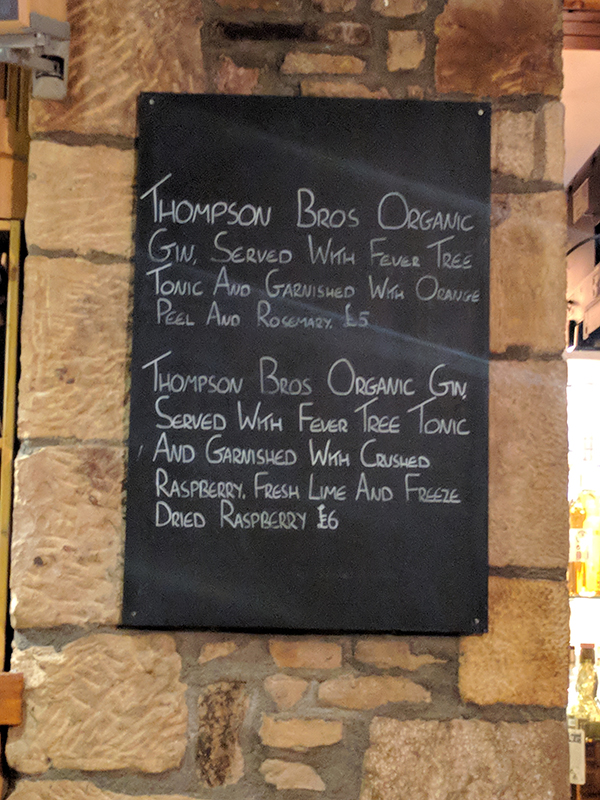 THOMPSON BROS ORGANIC
GIN, SERVED WITH FEVER TREE
TONIC AND GARNISHED WITH ORANGE
PEEL AND ROSEMARY. £5
THOMPSON BROS ORGANIC GIN,
SERVED WITH FEVER TREE TONIC
AND GARNISHED WITH CRUSHED
RASPBERRY, FRESH LIME AND FREEZE
DRIED RASPBERRY £6